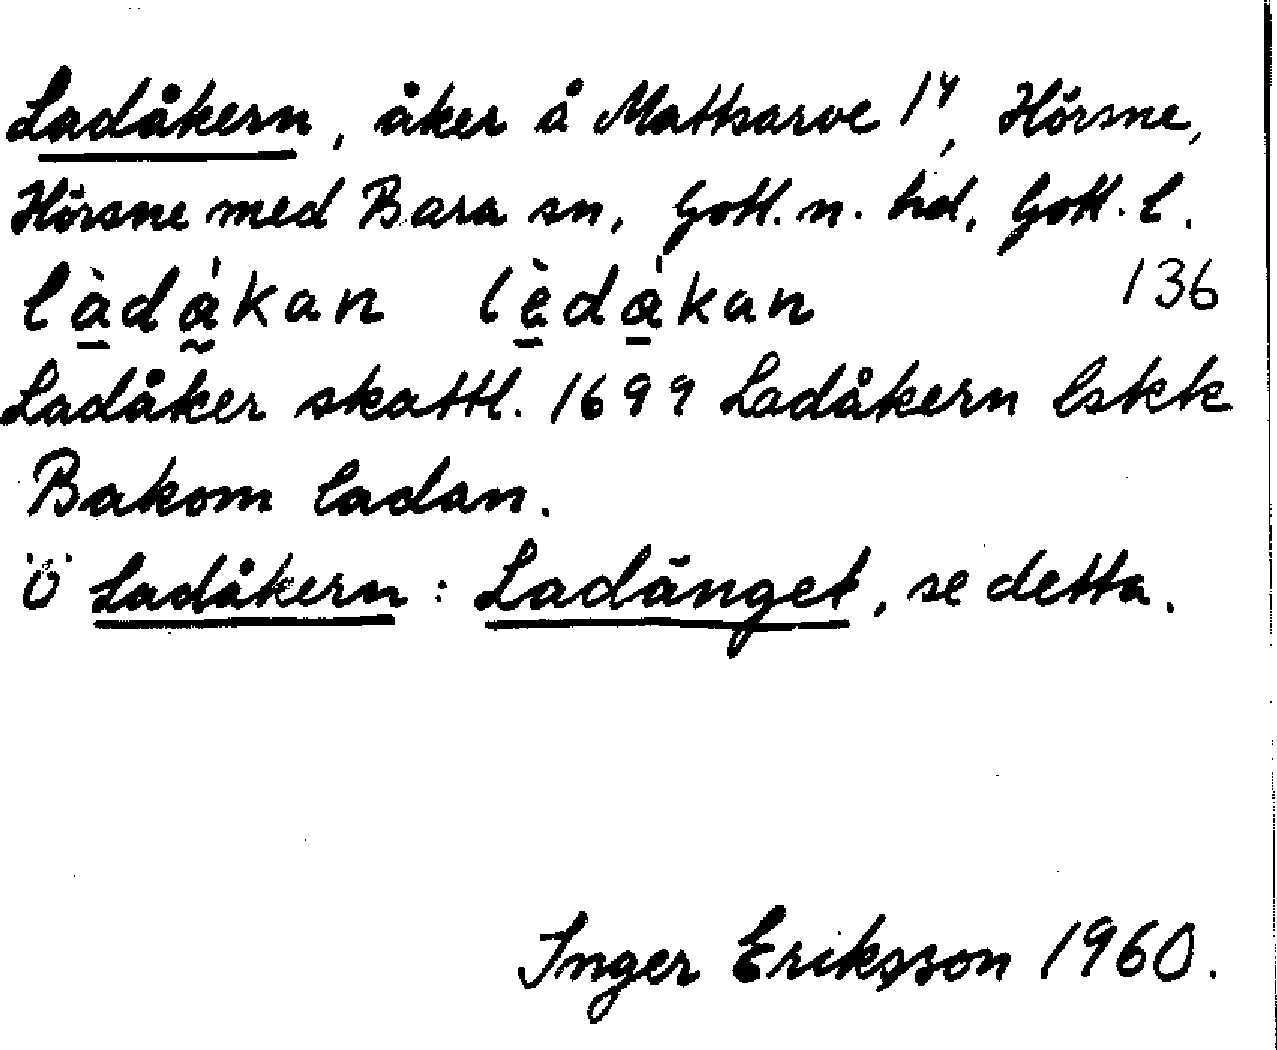 Ladåkern, åker å Mattsarve 1⁴, Hörsne,
Hörsne med Bara sn, Gotl. n. hd, Gotl. l.
làdàkan lèdàkan 136
Ladåker skattl. 1699 Ladåkern lskk
Bakom ladan.
Ö Ladåkern : Ladänget, se detta.
Inger Eriksson 1960.